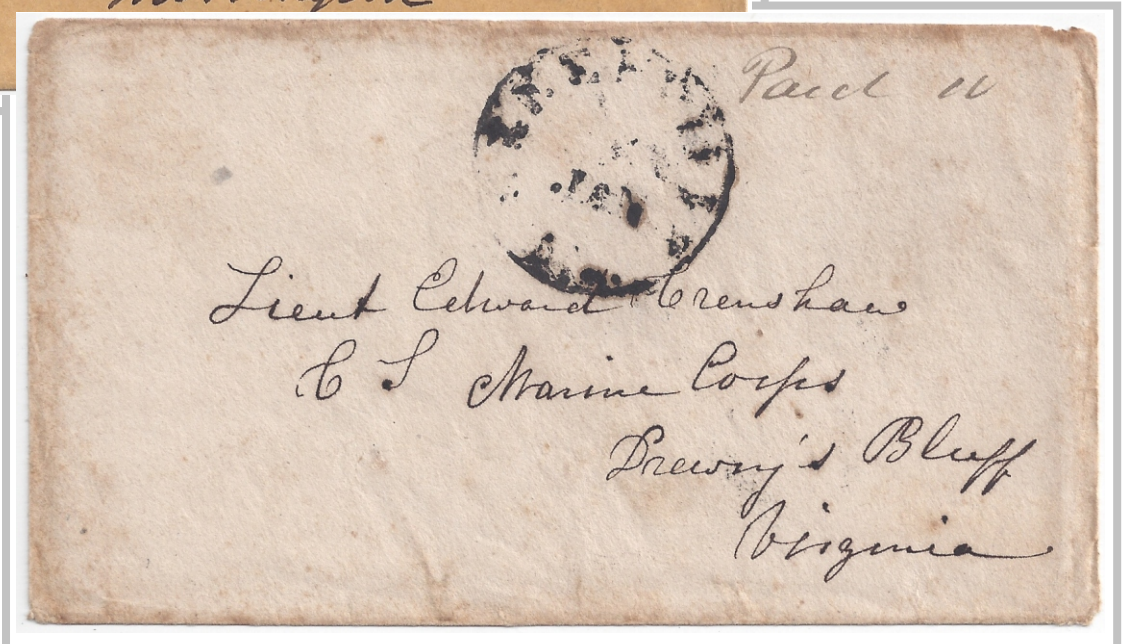 Paid
Lieut Edward Crenshaw
C S Marine Corps
Drewry's Bluff
Virginia